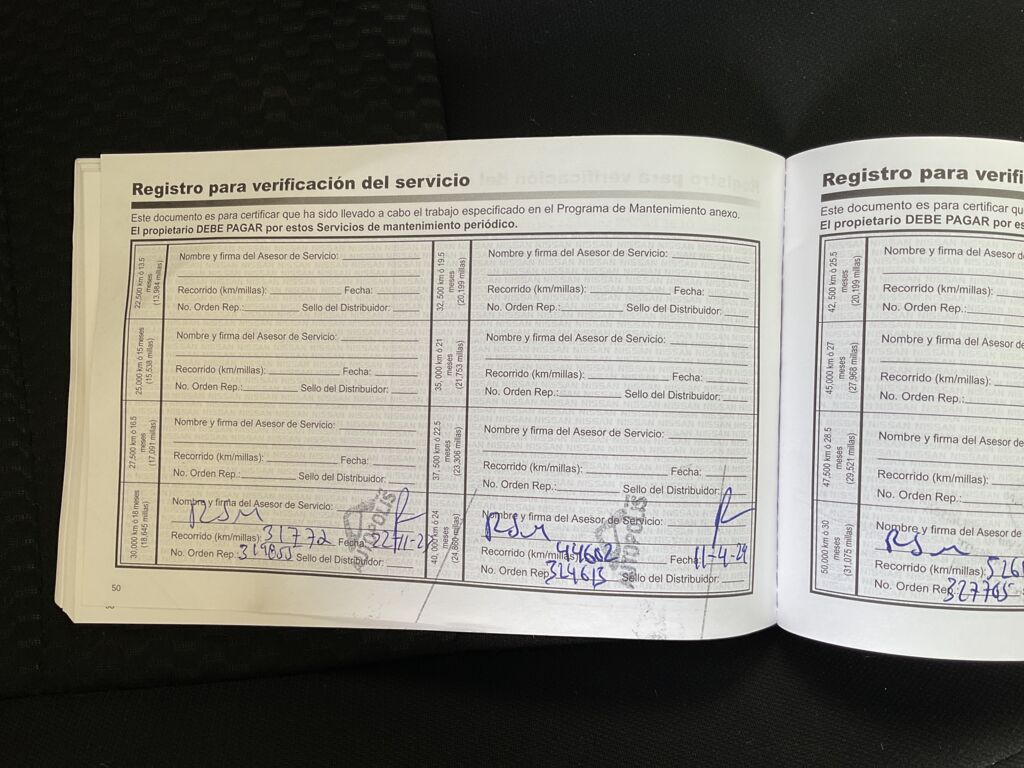 Registro para verificación del servicio
Este documento es para certificar que ha sido llevado a cabo el trabajo especificado en el Programa de Mantenimiento anexo.
El propietario DEBE PAGAR por estos Servicios de mantenimiento periódico.
22,500 km ó 13.5
meses
(13,984 millas)
Nombre y firma del Asesor de Servicio:
Recorrido (km/millas): Fecha:
No. Orden Rep.: Sello del Distribuidor:
25,000 km ó 15 meses
(15,538 millas)
Nombre y firma del Asesor de Servicio:
Recorrido (km/millas): Fecha:
No. Orden Rep.: Sello del Distribuidor:
27,500 km ó 16.5
meses
(17,091 millas)
Nombre y firma del Asesor de Servicio:
Recorrido (km/millas): Fecha:
No. Orden Rep.: Sello del Distribuidor:
30,000 km ó 18 meses
(18,645 millas)
Nombre y firma del Asesor de Servicio:
Recorrido (km/millas): 31772 Fecha:
No. Orden Rep. Sello del Distribuidor:
AUTOPOLIS
32,500 km ó 19.5
meses
(20,199 millas)
Nombre y firma del Asesor de Servicio:
Recorrido (km/millas): Fecha:
No. Orden Rep.: Sello del Distribuidor:
35,000 km ó 21
meses
(21,753 millas)
Nombre y firma del Asesor de Servicio:
Recorrido (km/millas): Fecha:
No. Orden Rep.: Sello del Distribuidor:
37,500 km ó 22.5
meses
(23,306 millas)
Nombre y firma del Asesor de Servicio:
Recorrido (km/millas): Fecha:
No. Orden Rep.: Sello del Distribuidor:
40,000 km ó 24
meses
(24,860 millas)
Nombre y firma del Asesor de Servicio:
Recorrido (km/millas) 44602 Fecha 11-4-24
No. Orden Rep. 324613 Sello del Distribuidor:
AUTOPOLIS
50
Registro para verifi
Este documento es para certificar qu
El propietario DEBE PAGAR por es
42,500 km ó 25.5
meses
(20,199 millas)
Nombre y firma del Asesor d
Recorrido (km/millas):
No. Orden Rep.:
45,000 km ó 27
meses
(27,968 millas)
Nombre y firma del Asesor d
Recorrido (km/millas):
No. Orden Rep.:
47,500 km ó 28.5
meses
(29,521 millas)
Nombre y firma del Asesor de
Recorrido (km/millas):
No. Orden Rep.:
50,000 km ó 30
meses
(31,075 millas)
Nombre y firma del Asesor de
Recorrido (km/millas): 526
No. Orden Rep. 327765